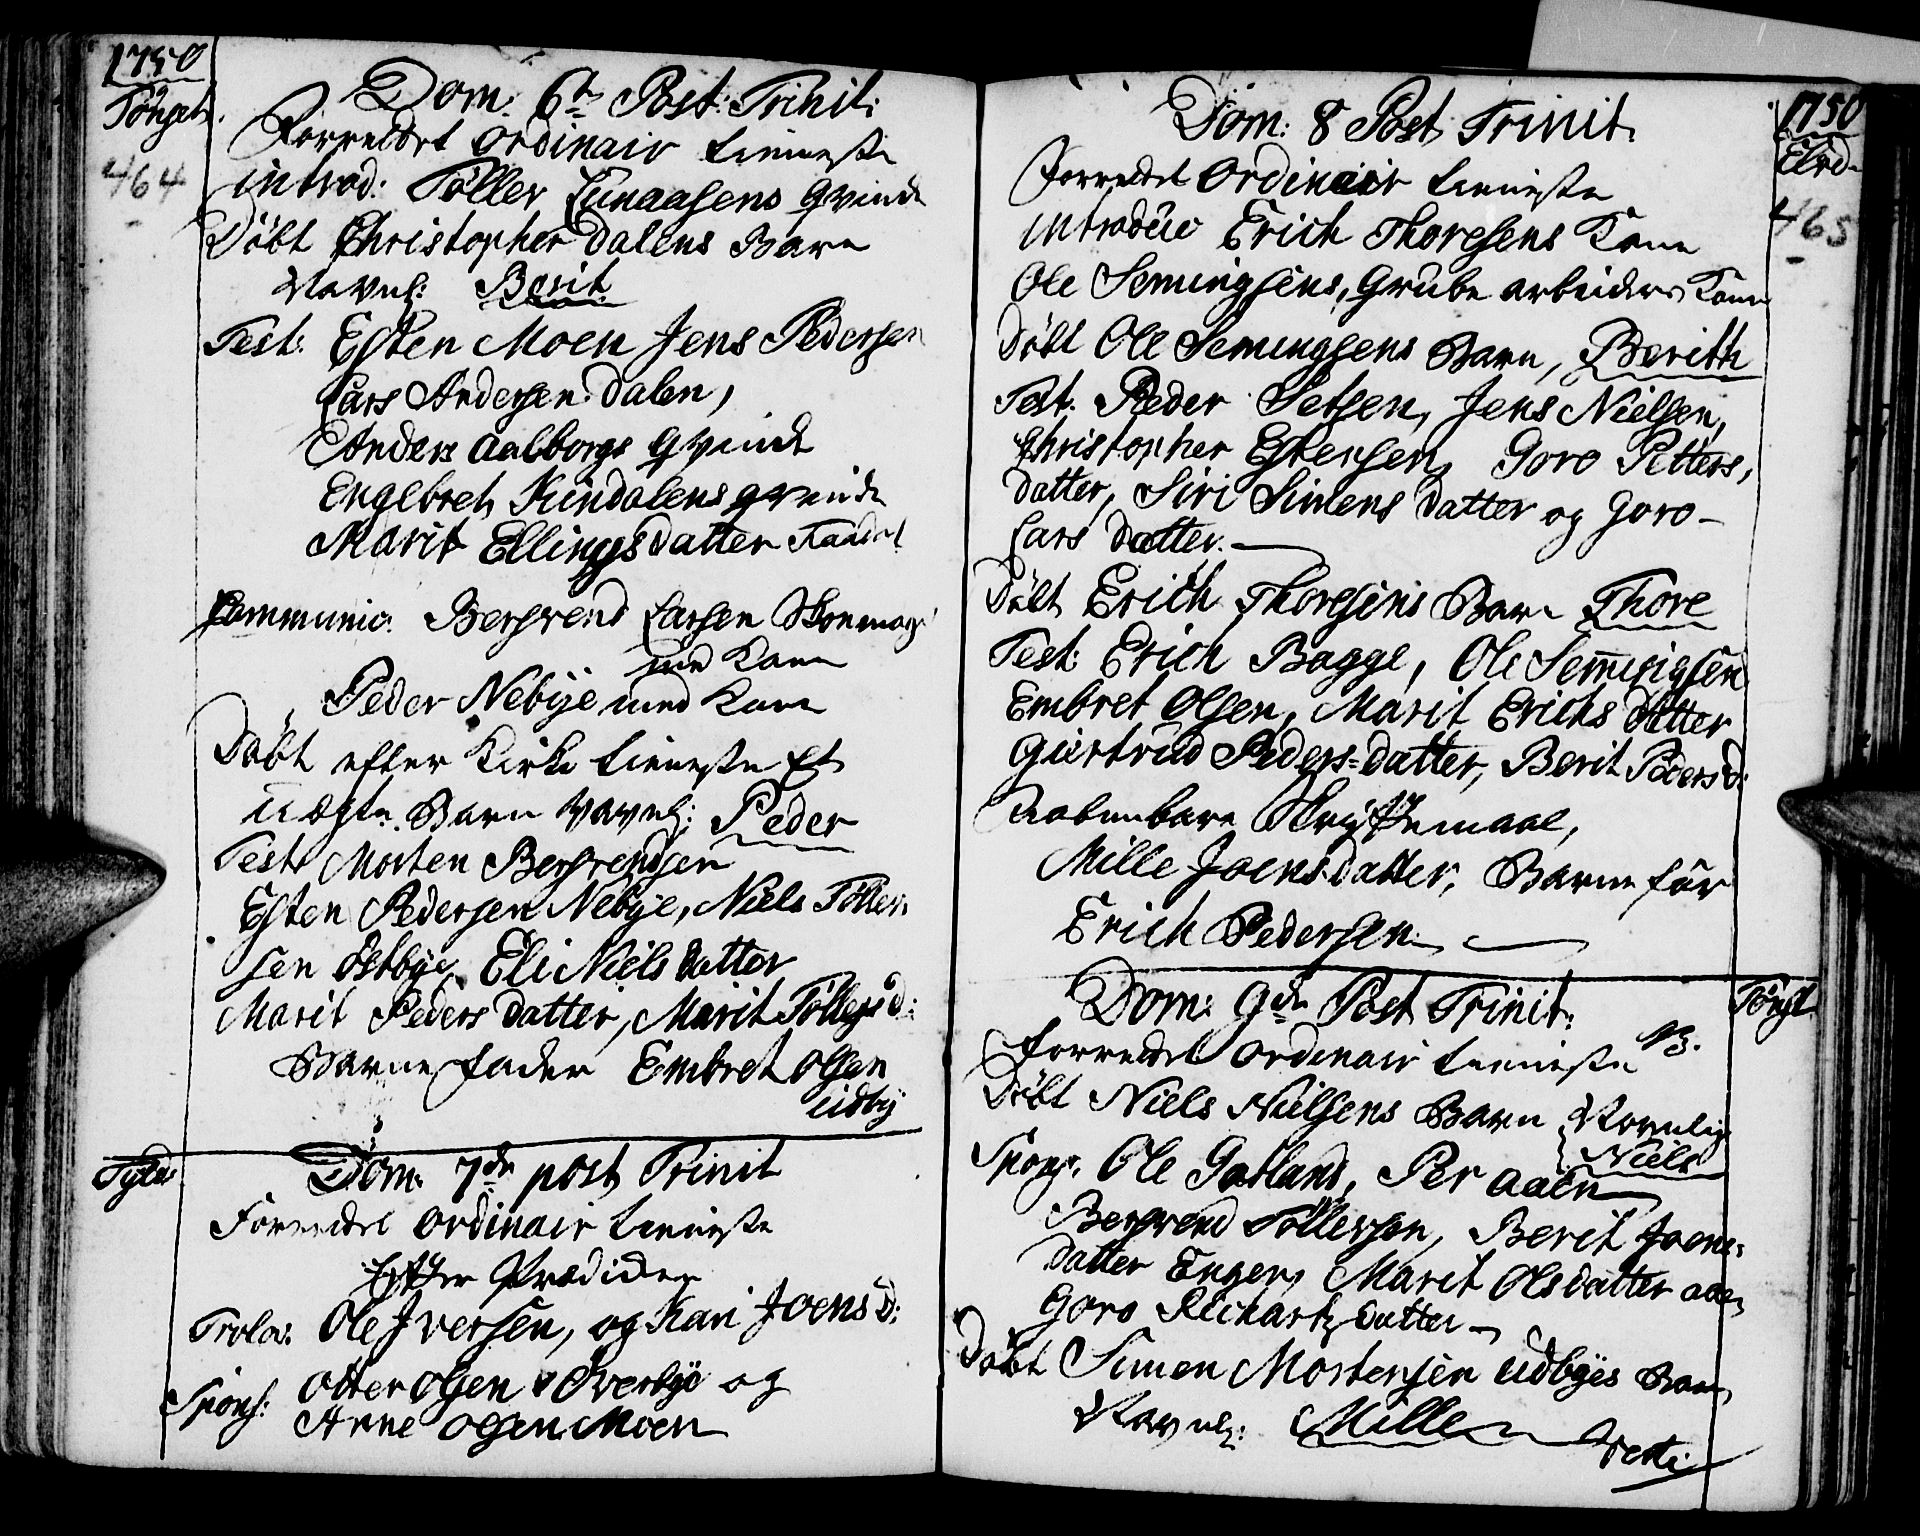 1750
Tönset.
464
Dom: 6te Post: Trinit:
Forrettet ordinair tienneste
introd: Töller Eunaasens qvinde
Döbt Christopher Dalens Barn
Navnl: Berit
Test: Esten Moen Jens Pedersen
Lars Andersen Dalen,
Anders Aalborgs qvinde
Engebret Kundalens qvinde
Marit Ellingsdatter
Communic. Bersvend Larsen Skomag:
med Kone
Peder Nebÿe med Kone
Döbt efter Kirke tienneste Et
uægte Barn navnl: Peder
Test: Morten Bersvendsen
Esten Pedersen Nebÿe, Niels Töller-
sen Östbÿe, Eli Niels datter
Marit Peders datter, Marit Töllers d:
Barnefader Embret Olsen
Udbÿ
Tyld:
Dom: 7de post Trinit
Forrettet ordinair tienneste
Efter Prædicken
Trolov: Ole Iversen, og Kari Joens D:
Spons: Otter Olsen Överbÿe og
Arne Olsen Moen
1750
Elvd-
465
Dom: 8 Post Trinit.
Forrettet ordinair tienneste
introduc Erich Thoresens Kone
Ole Semingsens, Grube arbeiders Kone
Döbt Ole Semingsens Barn, Berith
Test: Peder Setsen, Jens Nielsen,
Christopher Estensen, Goro Petters,
datter, Siri Simens datter og Goro-
Lars datter.
Döbt Erich Thoresens Barn Thore
Test: Erich Bagge, Ole Semmingsen
Embret Olsen, Marit Erichs datter
Giertrud Peders-datter, Berit Peders d:
Aabenbare Skriftemaal,
Mille Joens datter, Barne far
Erich Pedersen
Tönst.
Dom: 9de Post Trinit:
Forrettet ordinair tienneste
Döbt Niels Nielsens Barn Navnlig
Niels
Spons. Ole Gotland, Per Aaen
Bersvend Tollersen, Berit Joens:
datter Enger, Marit Olsdatter Aaen
Goro Richartz datter
Döbt Simen Mortensen Udbÿes Barn
Navnl: Mille